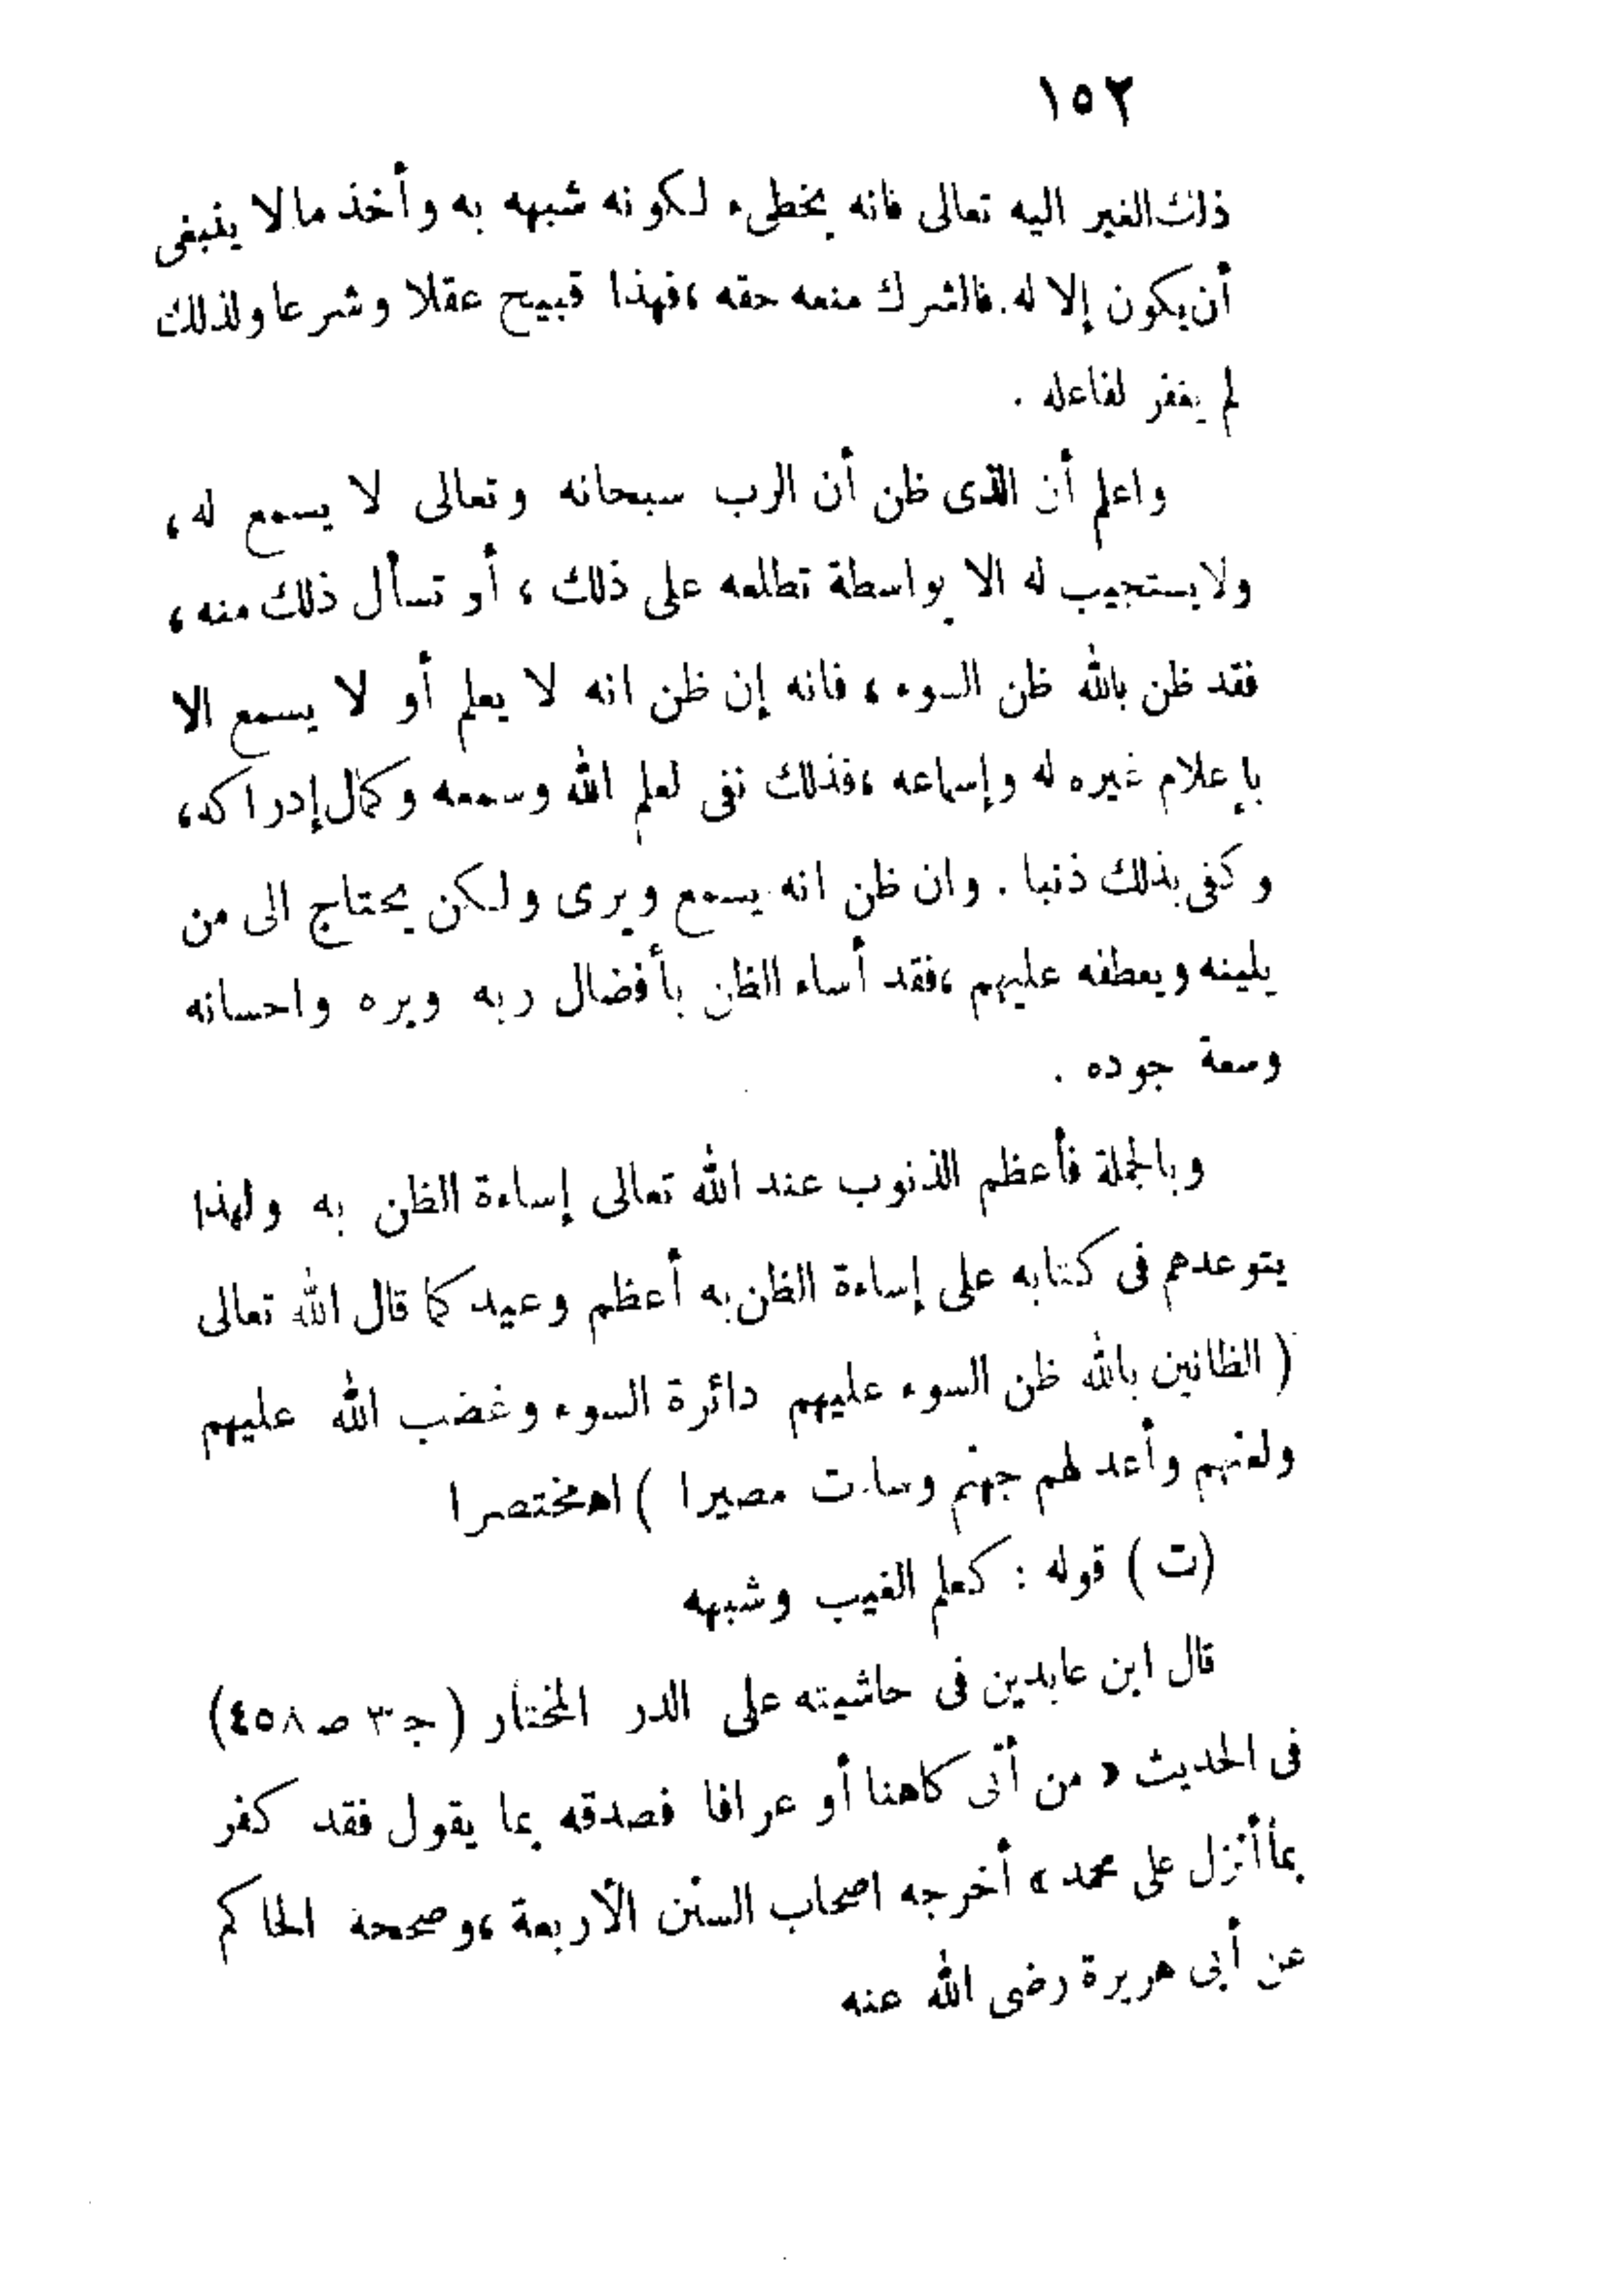 ١٥٢
ذلك الغير اليه تعالى فانه يخطىء لكونه شبهه به وأخذ مالا ينبغى
أن يكون إلا له. فالشرك منعه حقه ، فهذا قبيح عقلا وشرعا ولذلك
لم يغفر لفاعله .
واعلم أن الذى ظن أن الرب سبحانه وتعالى لا يسمع له ،
ولا يستجيب له الا بواسطة تطلعه على ذلك ، أو تسأل ذلك منه ،
فقد ظن بالله ظن السوء ، فانه إن ظن انه لا يعلم أو لا يسمع الا
بإعلام غيره له وإسماعه ، فذلك نفى لعلم الله وسمعه وكمال إدراكه ،
وكفى بذلك ذنبا . وان ظن انه يسمع ويرى ولكن يحتاج الى من
يلينه ويعطفه عليهم ، فقد أساء الظن بأفضال ربه وبره واحسانه
وسعة جوده .
وبالجملة فأعظم الذنوب عند الله تعالى إساءة الظن به ولهذا
يتوعدهم فى كتابه على إساءة الظن به أعظم وعيد كما قال الله تعالى
( الظانين بالله ظن السوء عليهم دائرة السوء وغضب الله عليهم
ولعنهم وأعد لهم جهنم وساءت مصيرا ) اه مختصرا
(ت ) قوله : كعلم الغيب وشبهه
قال ابن عابدين فى حاشيته على الدر المختار ( جـ ٣ صـ ٤٥٨)
فى الحديث « من أتى كاهنا أو عرافا فصدقه بما يقول فقد كفر
بما أنزل على محمد » أخرجه اصحاب السنن الأربعة ، وصححه الحاكم
عن أبى هريرة رضى الله عنه